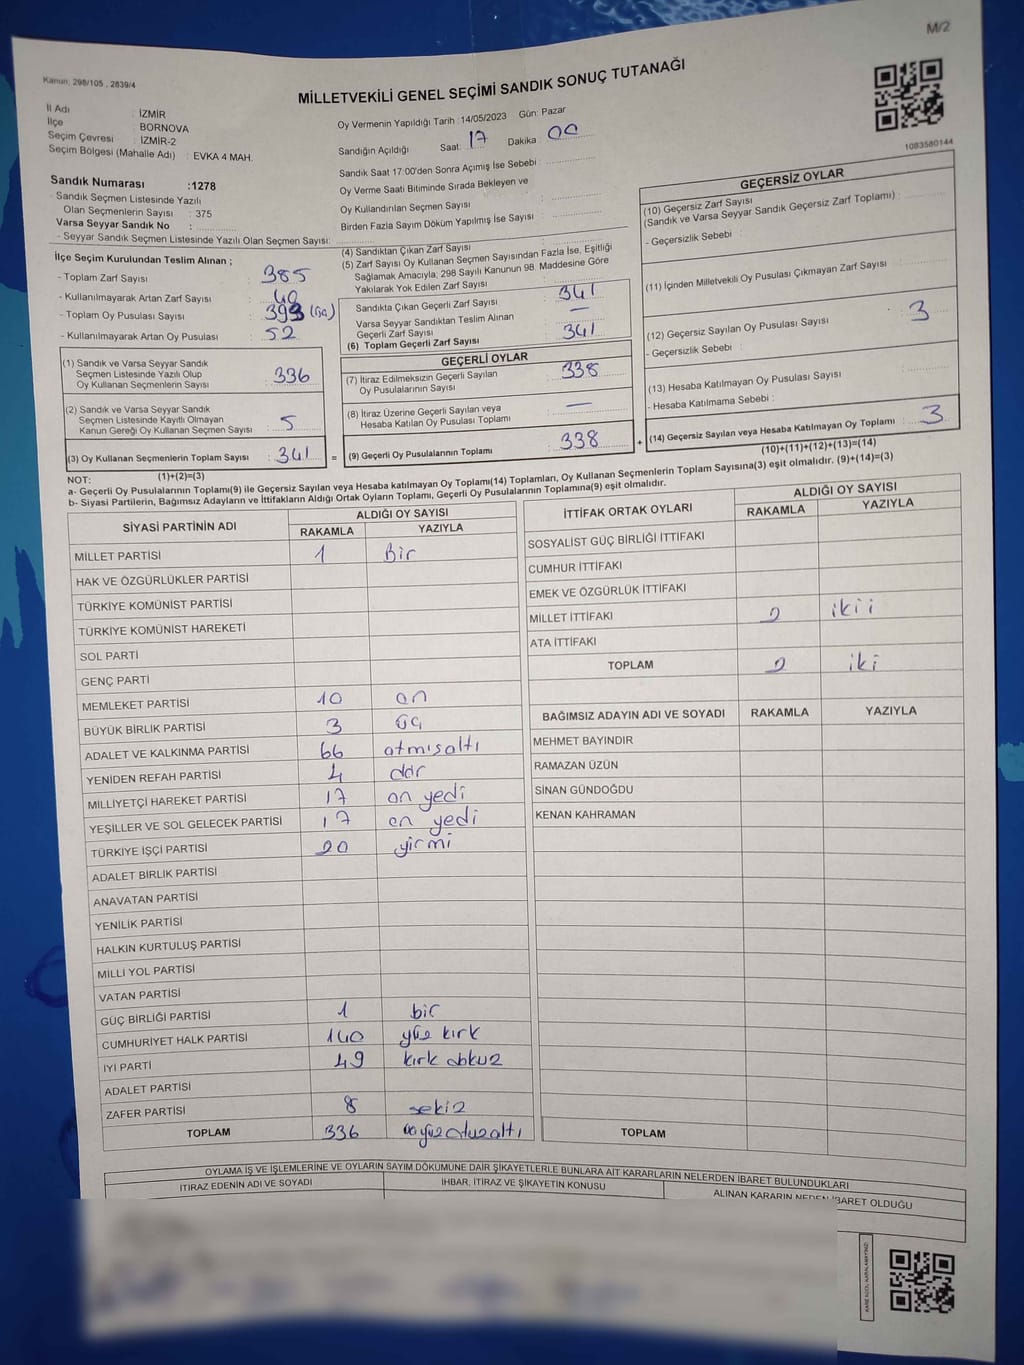 M/2
Kanun: 298/105 , 2839/4
MİLLETVEKİLİ GENEL SEÇİMİ SANDIK SONUÇ TUTANAĞI
İl Adı : İZMİR
İlçe : BORNOVA
Seçim Çevresi : İZMİR-2
Seçim Bölgesi (Mahalle Adı) : EVKA 4 MAH.
Oy Vermenin Yapıldığı Tarih : 14/05/2023 Gün: Pazar
Sandığın Açıldığı Saat: 17 Dakika: 00
Sandık Saat 17:00'den Sonra Açımış İse Sebebi :
Oy Verme Saati Bitiminde Sırada Bekleyen ve
Oy Kullandırılan Seçmen Sayısı :
Birden Fazla Sayım Döküm Yapılmış İse Sayısı :
1083580144
Sandık Numarası :1278
- Sandık Seçmen Listesinde Yazılı
Olan Seçmenlerin Sayısı : 375
Varsa Seyyar Sandık No :
- Seyyar Sandık Seçmen Listesinde Yazılı Olan Seçmen Sayısı:
İlçe Seçim Kurulundan Teslim Alınan ;
- Toplam Zarf Sayısı : 385
- Kullanılmayarak Artan Zarf Sayısı : 40
- Toplam Oy Pusulası Sayısı : 393
- Kullanılmayarak Artan Oy Pusulası : 52
(1) Sandık ve Varsa Seyyar Sandık
Seçmen Listesinde Yazılı Olup
Oy Kullanan Seçmenlerin Sayısı : 336
(2) Sandık ve Varsa Seyyar Sandık
Seçmen Listesinde Kayıtlı Olmayan
Kanun Gereği Oy Kullanan Seçmen Sayısı : 5
(3) Oy Kullanan Seçmenlerin Toplam Sayısı : 341
(1)+(2)=(3)
(4) Sandıktan Çıkan Zarf Sayısı :
(5) Zarf Sayısı Oy Kullanan Seçmen Sayısından Fazla İse, Eşitliği
Sağlamak Amacıyla; 298 Sayılı Kanunun 98. Maddesine Göre
Yakılarak Yok Edilen Zarf Sayısı :
Sandıkta Çıkan Geçerli Zarf Sayısı : 341
Varsa Seyyar Sandıktan Teslim Alınan
Geçerli Zarf Sayısı : —
(6) Toplam Geçerli Zarf Sayısı : 341
GEÇERLİ OYLAR
(7) İtiraz Edilmeksizin Geçerli Sayılan
Oy Pusulalarının Sayısı : 338
(8) İtiraz Üzerine Geçerli Sayılan veya
Hesaba Katılan Oy Pusulası Toplamı : —
= (9) Geçerli Oy Pusulalarının Toplamı : 338 +
GEÇERSİZ OYLAR
(10) Geçersiz Zarf Sayısı
(Sandık ve Varsa Seyyar Sandık Geçersiz Zarf Toplamı) :
- Geçersizlik Sebebi :
(11) İçinden Milletvekili Oy Pusulası Çıkmayan Zarf Sayısı :
(12) Geçersiz Sayılan Oy Pusulası Sayısı : 3
- Geçersizlik Sebebi :
(13) Hesaba Katılmayan Oy Pusulası Sayısı :
- Hesaba Katılmama Sebebi :
(14) Geçersiz Sayılan veya Hesaba Katılmayan Oy Toplamı : 3
(10)+(11)+(12)+(13)=(14)
NOT:
a- Geçerli Oy Pusulalarının Toplamı(9) ile Geçersiz Sayılan veya Hesaba katılmayan Oy Toplamı(14) Toplamları, Oy Kullanan Seçmenlerin Toplam Sayısına(3) eşit olmalıdır. (9)+(14)=(3)
b- Siyasi Partilerin, Bağımsız Adayların ve İttifakların Aldığı Ortak Oyların Toplamı, Geçerli Oy Pusulalarının Toplamına(9) eşit olmalıdır.
SİYASİ PARTİNİN ADI ALDIĞI OY SAYISI
RAKAMLA YAZIYLA
MİLLET PARTİSİ 1 Bir
HAK VE ÖZGÜRLÜKLER PARTİSİ
TÜRKİYE KOMÜNİST PARTİSİ
TÜRKİYE KOMÜNİST HAREKETİ
SOL PARTİ
GENÇ PARTİ
MEMLEKET PARTİSİ 10 on
BÜYÜK BİRLİK PARTİSİ 3 üç
ADALET VE KALKINMA PARTİSİ 66 atmışaltı
YENİDEN REFAH PARTİSİ 4 dör
MİLLİYETÇİ HAREKET PARTİSİ 17 on yedi
YEŞİLLER VE SOL GELECEK PARTİSİ 17 on yedi
TÜRKİYE İŞÇİ PARTİSİ 20 yirmi
ADALET BİRLİK PARTİSİ
ANAVATAN PARTİSİ
YENİLİK PARTİSİ
HALKIN KURTULUŞ PARTİSİ
MİLLİ YOL PARTİSİ
VATAN PARTİSİ
GÜÇ BİRLİĞİ PARTİSİ 1 bir
CUMHURİYET HALK PARTİSİ 140 yüz kırk
İYİ PARTİ 49 kırk dokuz
ADALET PARTİSİ
ZAFER PARTİSİ 8 sekiz
TOPLAM 336
İTTİFAK ORTAK OYLARI ALDIĞI OY SAYISI
RAKAMLA YAZIYLA
SOSYALİST GÜÇ BİRLİĞİ İTTİFAKI
CUMHUR İTTİFAKI
EMEK VE ÖZGÜRLÜK İTTİFAKI
MİLLET İTTİFAKI 2 ikii
ATA İTTİFAKI
TOPLAM 2 iki
BAĞIMSIZ ADAYIN ADI VE SOYADI RAKAMLA YAZIYLA
MEHMET BAYINDIR
RAMAZAN ÜZÜN
SİNAN GÜNDOĞDU
KENAN KAHRAMAN
TOPLAM
OYLAMA İŞ VE İŞLEMLERİNE VE OYLARIN SAYIM DÖKÜMÜNE DAİR ŞİKAYETLERLE BUNLARA AİT KARARLARIN NELERDEN İBARET BULUNDUKLARI
İTİRAZ EDENİN ADI VE SOYADI İHBAR, İTİRAZ VE ŞİKAYETİN KONUSU ALINAN KARARIN NEDEN İBARET OLDUĞU